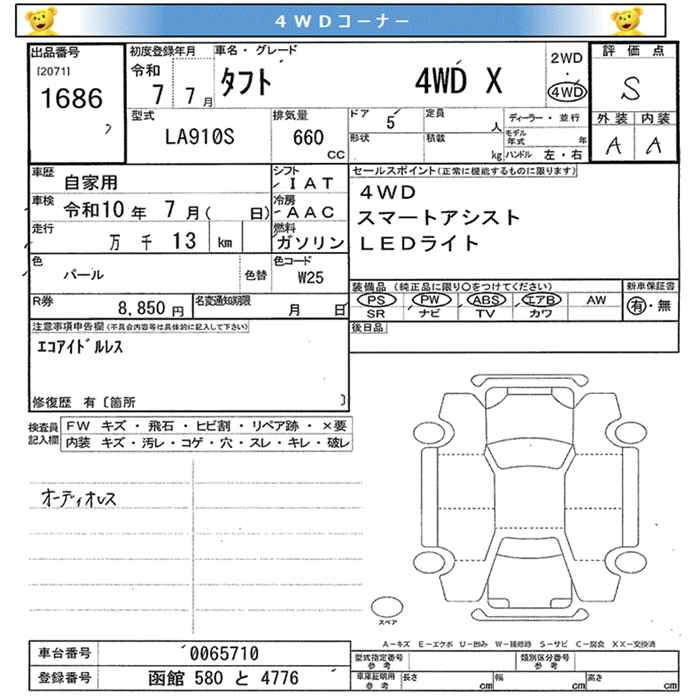 4WDコーナー
出品番号
[2071]
1686
初度登録年月
令和
7 7 月
車名・グレード
タフト 4WD X
2WD
・
4WD
評価点
S
外装 内装
A A
型式
LA910S
排気量
660
CC
ドア 5
定員 人
形状
積載 kg
ディーラー・並行
モデル年式 年
ハンドル 左・右
車歴 自家用
シフト IAT
車検 令和10年 7月( 日)
冷房 AAC
走行 万 千 13 km
燃料 ガソリン
色 パール 色替
色コード W25
R券 8,850円
名変通知期限 月 日
セールスポイント(正常に機能するものに限ります)
4WD
スマートアシスト
LEDライト
装備品 (純正品に限り○をつけてください)
PS PW ABS エアB AW
SR ナビ TV カワ
新車保証書
有・無
後日品
注意事項申告欄(不具合内容等は具体的に記入して下さい)
エコアイドルレス
修復歴 有〔箇所 〕
検査員記入欄
FW キズ・飛石・ヒビ割・リペア跡・×要
内装 キズ・汚レ・コゲ・穴・スレ・キレ・破レ
オーディオレス
スペア
A-キズ E-エクボ U-凹み W-補修跡 S-サビ C-腐食 XX-交換済
車台番号 0065710
登録番号 函館 580 と 4776
型式指定番号 参考
類別区分番号 参考
車庫証明用 参考
長さ cm 幅 cm 高さ cm